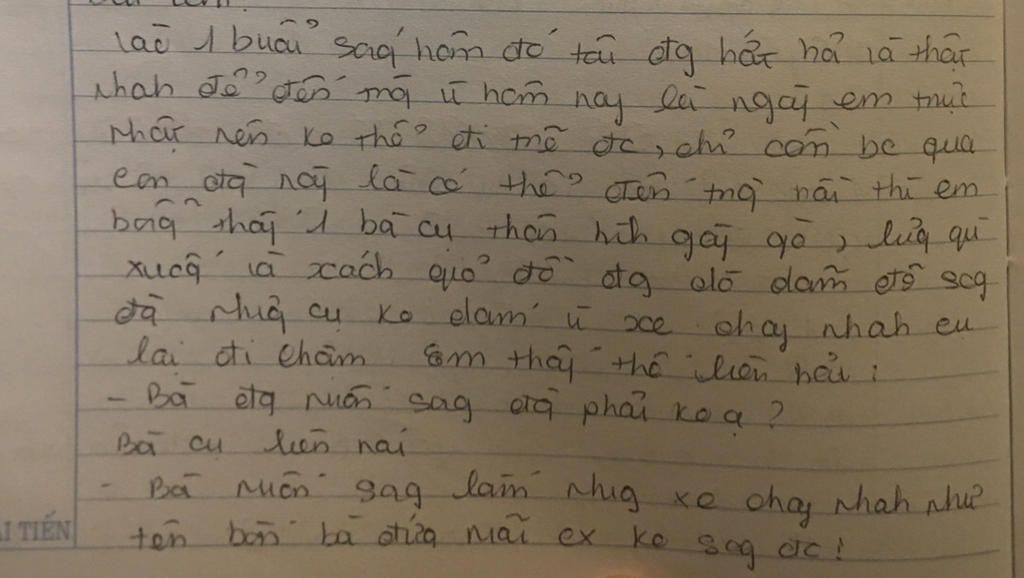 vào 1 buổi ság hôm đó tôi đg hớt hả là thật
nhah để đến trg vì hôm nay là ngày em trực
nhật nên ko thể đi trễ đc, chỉ còn bc qua
con đg này là có thể đến trg rồi thì em
bỗg thấy 1 bà cụ thân hìh gầy gò, lưg gù
xuốg và xách giỏ đồ đg dò dẫm để sag
đg nhưg cụ ko dám vì xe chạy nhah cụ
lại đi chậm em thấy thế liền hỏi:
- Bà đg muốn sag đg phải ko ạ?
Bà cụ liền nói
- Bà muốn sag lắm nhưg xe chạy nhah như
tên bắn bà đứg mãi ko sag đc!
TIẾN